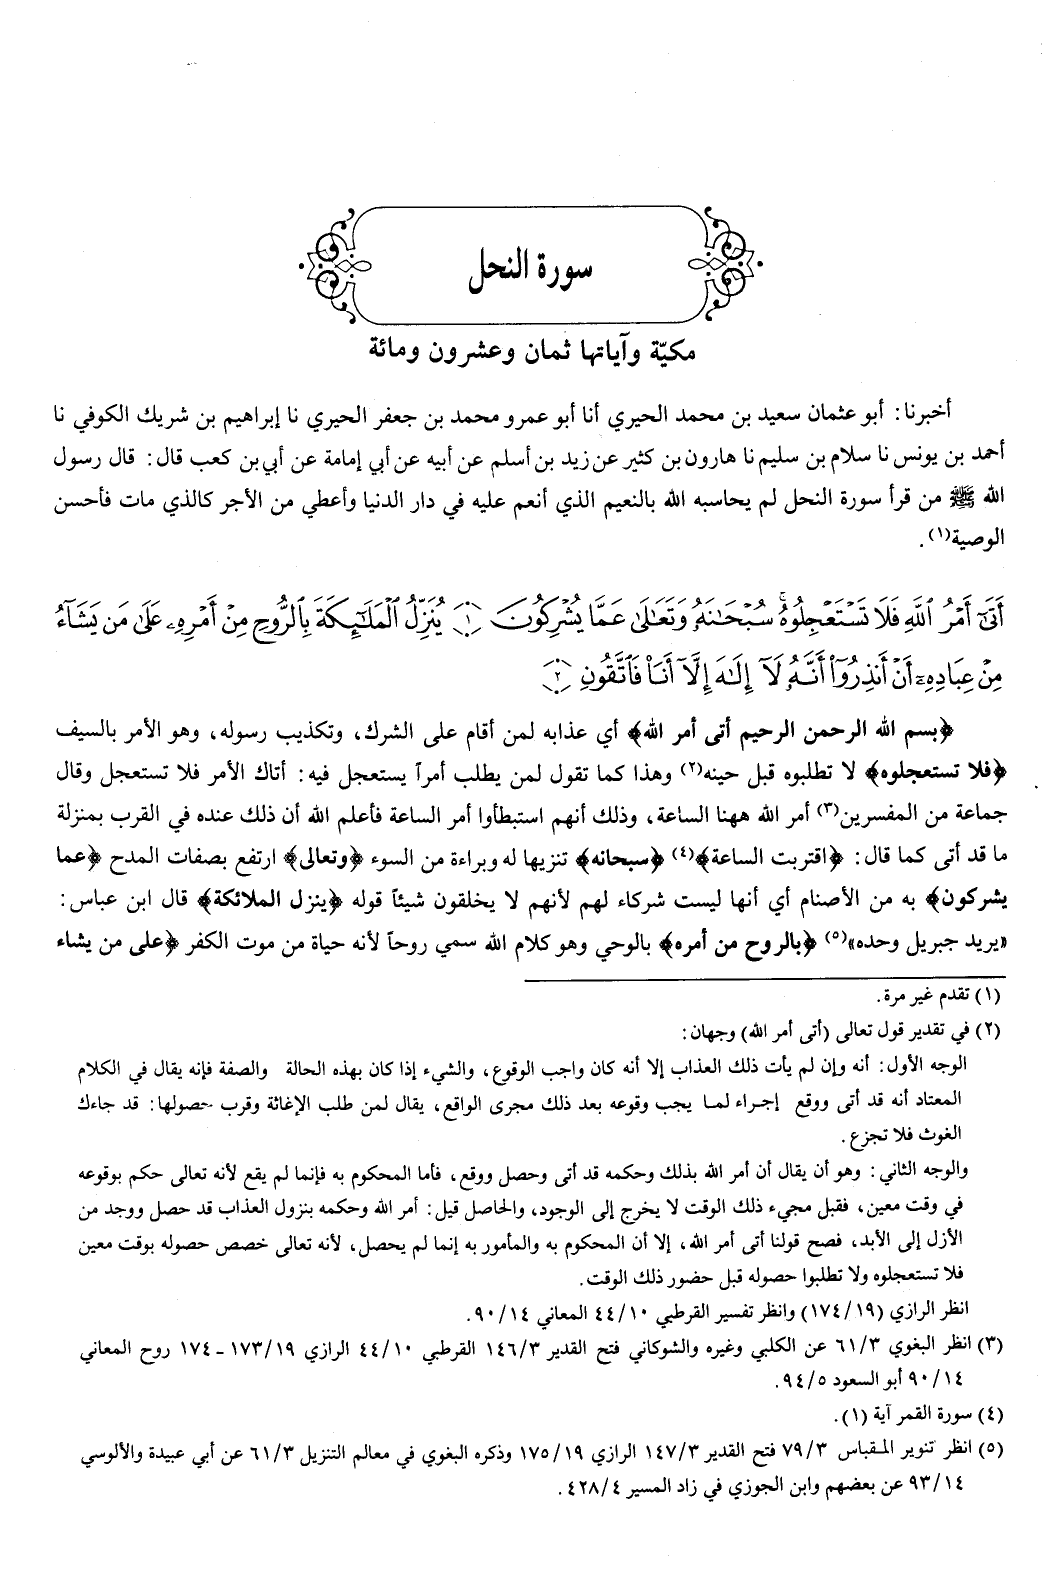 سورة النحل
مكيّة وآياتها ثمان وعشرون ومائة
أخبرنا: أبو عثمان سعيد بن محمد الحيري أنا أبو عمرو محمد بن جعفر الحيري نا إبراهيم بن شريك الكوفي نا
أحمد بن يونس نا سلام بن سليم نا هارون بن كثير عن زيد بن أسلم عن أبيه عن أبي إمامة عن أبي بن كعب قال: قال رسول
الله ﷺ من قرأ سورة النحل لم يحاسبه الله بالنعيم الذي أنعم عليه في دار الدنيا وأعطي من الأجر كالذي مات فأحسن
الوصية(١).
أَتَىٰٓ أَمْرُ ٱللَّهِ فَلَا تَسْتَعْجِلُوهُۚ سُبْحَٰنَهُۥ وَتَعَٰلَىٰ عَمَّا يُشْرِكُونَ ١ يُنَزِّلُ ٱلْمَلَٰٓئِكَةَ بِٱلرُّوحِ مِنْ أَمْرِهِۦ عَلَىٰ مَن يَشَآءُ
مِنْ عِبَادِهِۦٓ أَنْ أَنذِرُوٓا۟ أَنَّهُۥ لَآ إِلَٰهَ إِلَّآ أَنَا۠ فَٱتَّقُونِ ٢
﴿بسم الله الرحمن الرحيم أتى أمر الله﴾ أي عذابه لمن أقام على الشرك، وتكذيب رسوله، وهو الأمر بالسيف
﴿فلا تستعجلوه﴾ لا تطلبوه قبل حينه(٢) وهذا كما تقول لمن يطلب أمراً يستعجل فيه: أتاك الأمر فلا تستعجل وقال
جماعة من المفسرين(٣) أمر الله ههنا الساعة، وذلك أنهم استبطأوا أمر الساعة فأعلم الله أن ذلك عنده في القرب بمنزلة
ما قد أتى كما قال: ﴿اقتربت الساعة﴾(٤) ﴿سبحانه﴾ تنزيها له وبراءة من السوء ﴿وتعالى﴾ ارتفع بصفات المدح ﴿عما
يشركون﴾ به من الأصنام أي أنها ليست شركاء لهم لأنهم لا يخلقون شيئاً قوله ﴿ينزل الملائكة﴾ قال ابن عباس:
«يريد جبريل وحده»(٥) ﴿بالروح من أمره﴾ بالوحي وهو كلام الله سمي روحاً لأنه حياة من موت الكفر ﴿على من يشاء
(١) تقدم غير مرة.
(٢) في تقدير قول تعالى (أتى أمر الله) وجهان:
الوجه الأول: أنه وإن لم يأت ذلك العذاب إلا أنه كان واجب الوقوع، والشيء إذا كان بهذه الحالة والصفة فإنه يقال في الكلام
المعتاد أنه قد أتى ووقع إجراء لما يجب وقوعه بعد ذلك مجرى الواقع، يقال لمن طلب الإغاثة وقرب حصولها: قد جاءك
الغوث فلا تجزع.
والوجه الثاني: وهو أن يقال أن أمر الله بذلك وحكمه قد أتى وحصل ووقع، فأما المحكوم به فإنما لم يقع لأنه تعالى حكم بوقوعه
في وقت معين، فقبل مجيء ذلك الوقت لا يخرج إلى الوجود، والحاصل قيل: أمر الله وحكمه بنزول العذاب قد حصل ووجد من
الأزل إلى الأبد، فصح قولنا أتى أمر الله، إلا أن المحكوم به والمأمور به إنما لم يحصل، لأنه تعالى خصص حصوله بوقت معين
فلا تستعجلوه ولا تطلبوا حصوله قبل حضور ذلك الوقت.
انظر الرازي (١٧٤/١٩) وانظر تفسير القرطبي ٤٤/١٠ المعاني ٩٠/١٤.
(٣) انظر البغوي ٦١/٣ عن الكلبي وغيره والشوكاني فتح القدير ١٤٦/٣ القرطبي ٤٤/١٠ الرازي ١٧٣/١٩ ـ ١٧٤ روح المعاني
٩٠/١٤ أبو السعود ٩٤/٥.
(٤) سورة القمر آية (١).
(٥) انظر تنوير المقباس ٧٩/٣ فتح القدير ١٤٧/٣ الرازي ١٧٥/١٩ وذكره البغوي في معالم التنزيل ٦١/٣ عن أبي عبيدة والألوسي
٩٣/١٤ عن بعضهم وابن الجوزي في زاد المسير ٤٢٨/٤.